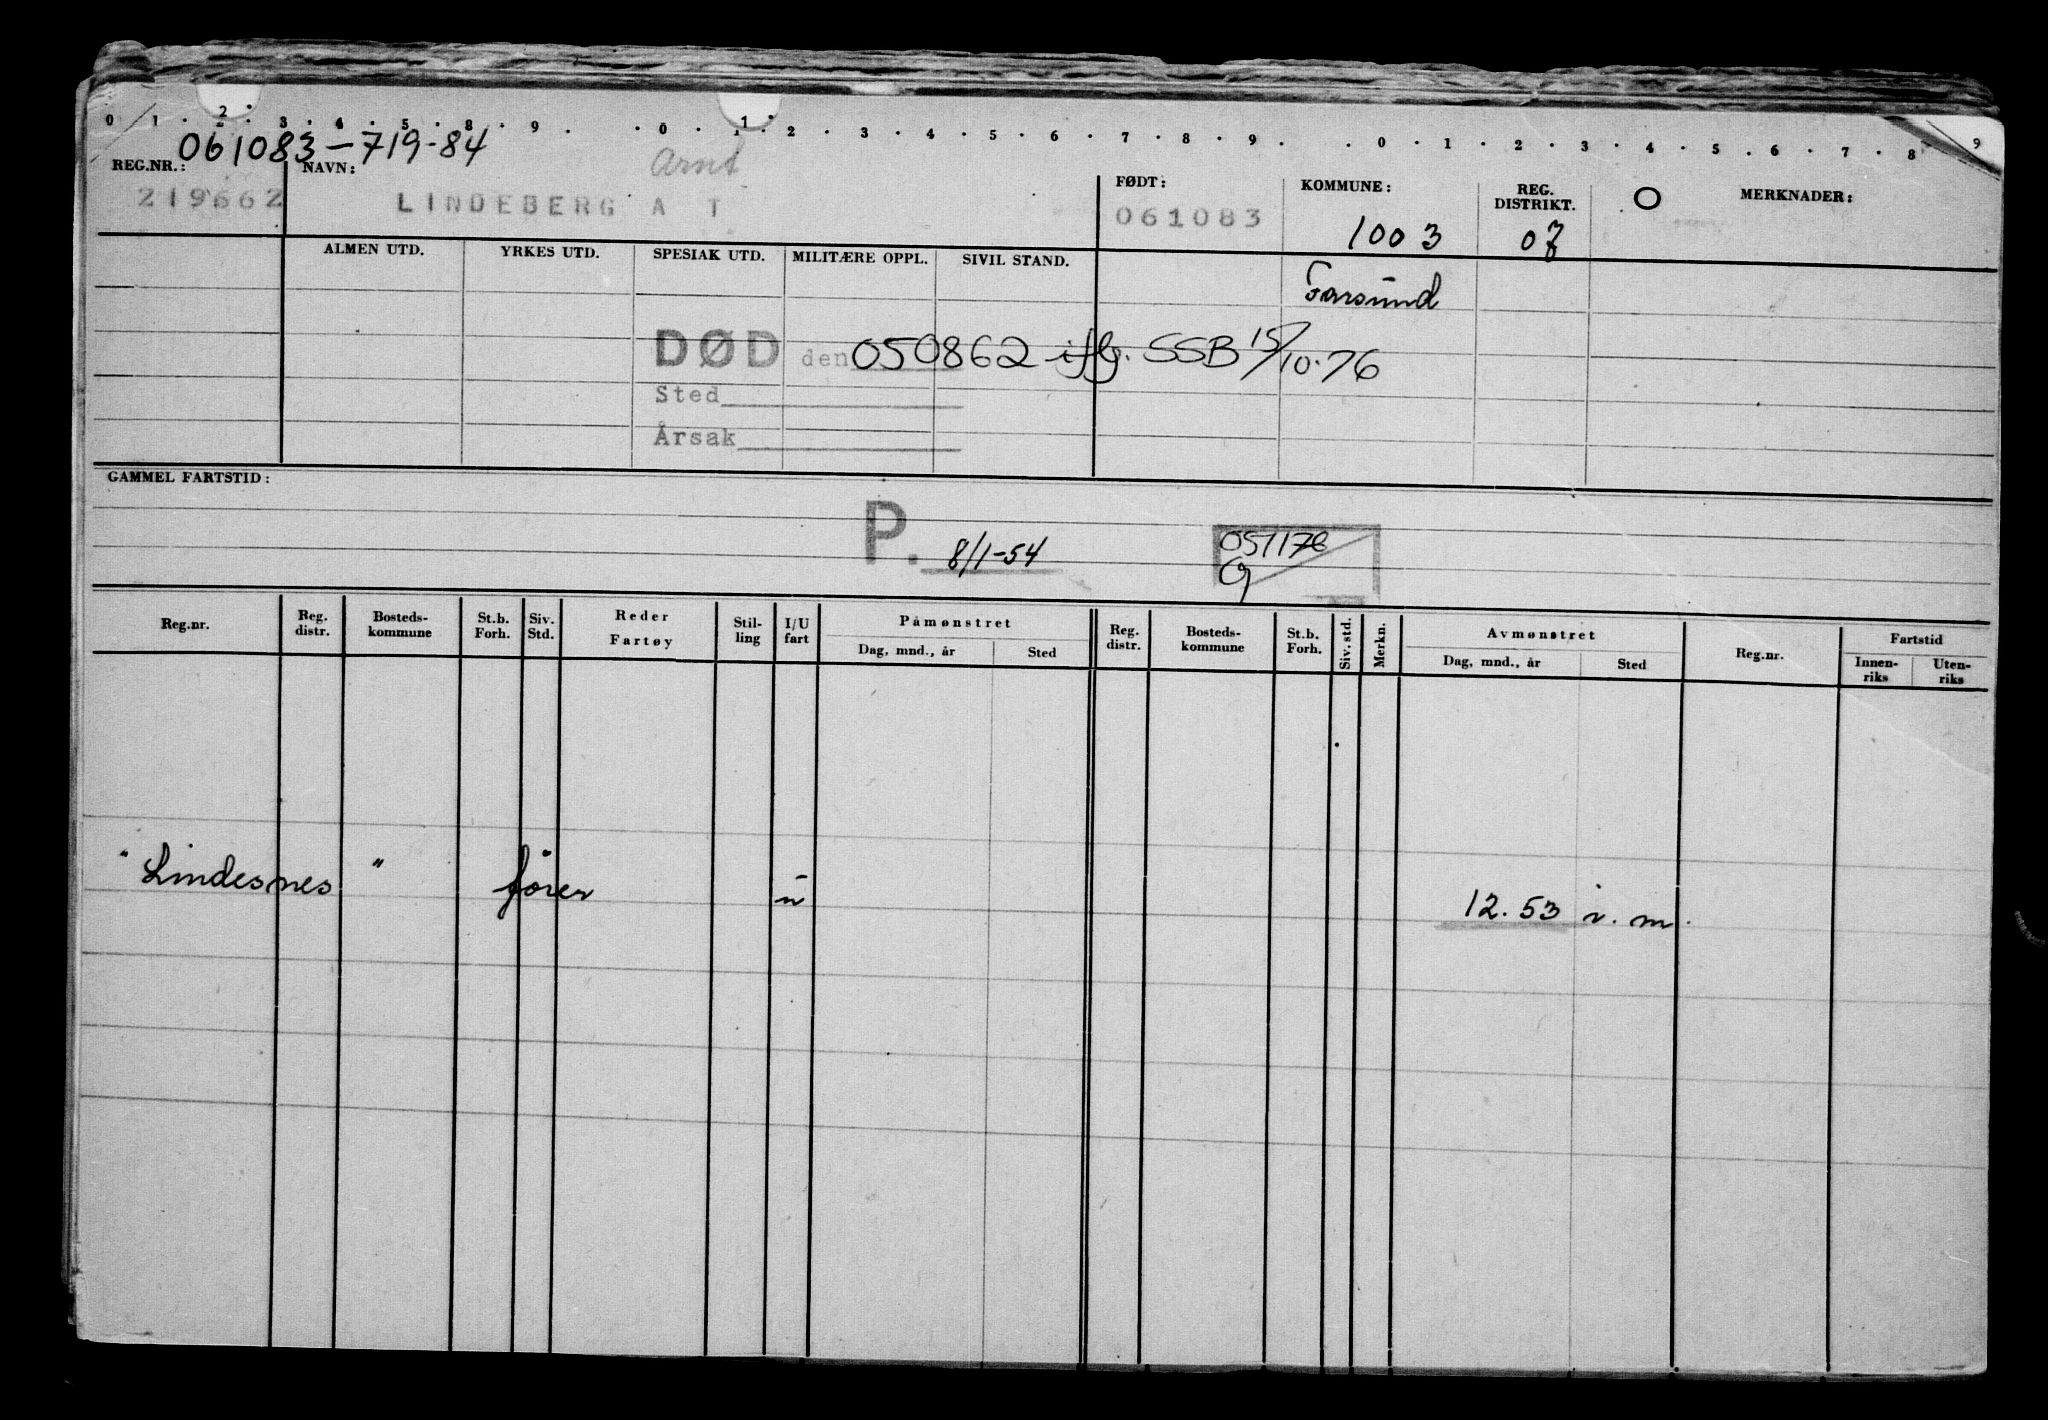 0 1 . 2 . 3 . 4 . 5 . 8 . 9 . . 0 . 1 . 2 . 3 . 4 . 5 . 6 . 7 . 8 . 9 . . 0 . 1 . 2 . 3 . 4 . 5 . 6 . 7 . 8 9
061083-719-84
Arnt
REG.NR.: NAVN: FØDT: KOMMUNE: REG. DISTRIKT. O MERKNADER:
219662 LINDEBERG A T 061083 1003 07
ALMEN UTD. YRKES UTD. SPESIAK UTD. MILITÆRE OPPL. SIVIL STAND.
Farsund
DØD den 050862 iflg. SSB 15/10.76
Sted
Årsak
GAMMEL FARTSTID:
P. 8/1-54
051176
Reg.nr. Reg. distr. Bosteds-kommune St.b. Forh. Siv. Std. Reder Fartøy Stil-ling I/U fart Påmønstret Reg. distr. Bosteds-kommune St.b. Forh. Siv. std. Merkn. Avmønstret Reg.nr. Fartstid
Dag, mnd., år Sted Dag, mnd., år Sted Innen-riks Uten-riks
"Lindesnes" fører u 12.53 i.m.